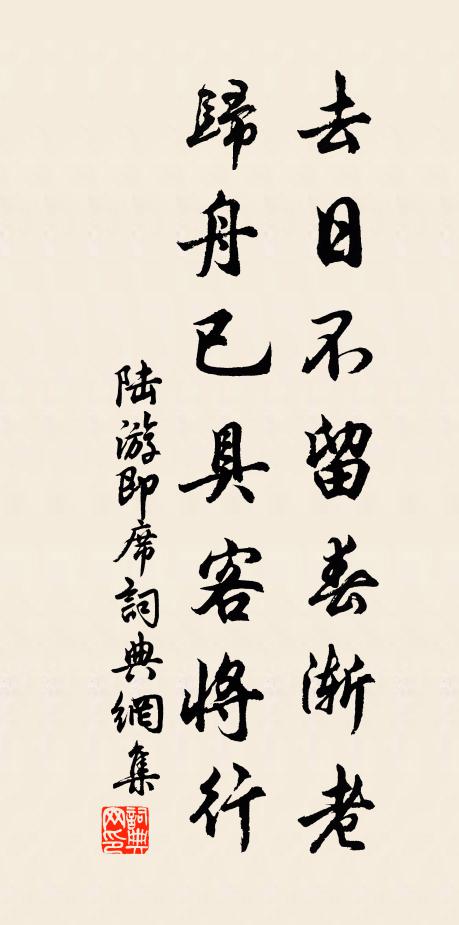 去日不留春漸老
歸舟已具客將行
陸游即席詞典網集
詞典网印